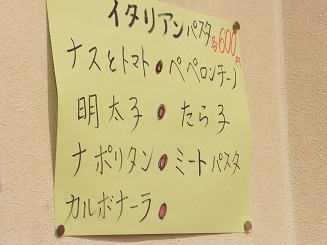 イタリアンパスタ各600円
ナスとトマト●ペペロンチーノ
明太子●たら子
ナポリタン●ミートパスタ
カルボナーラ●